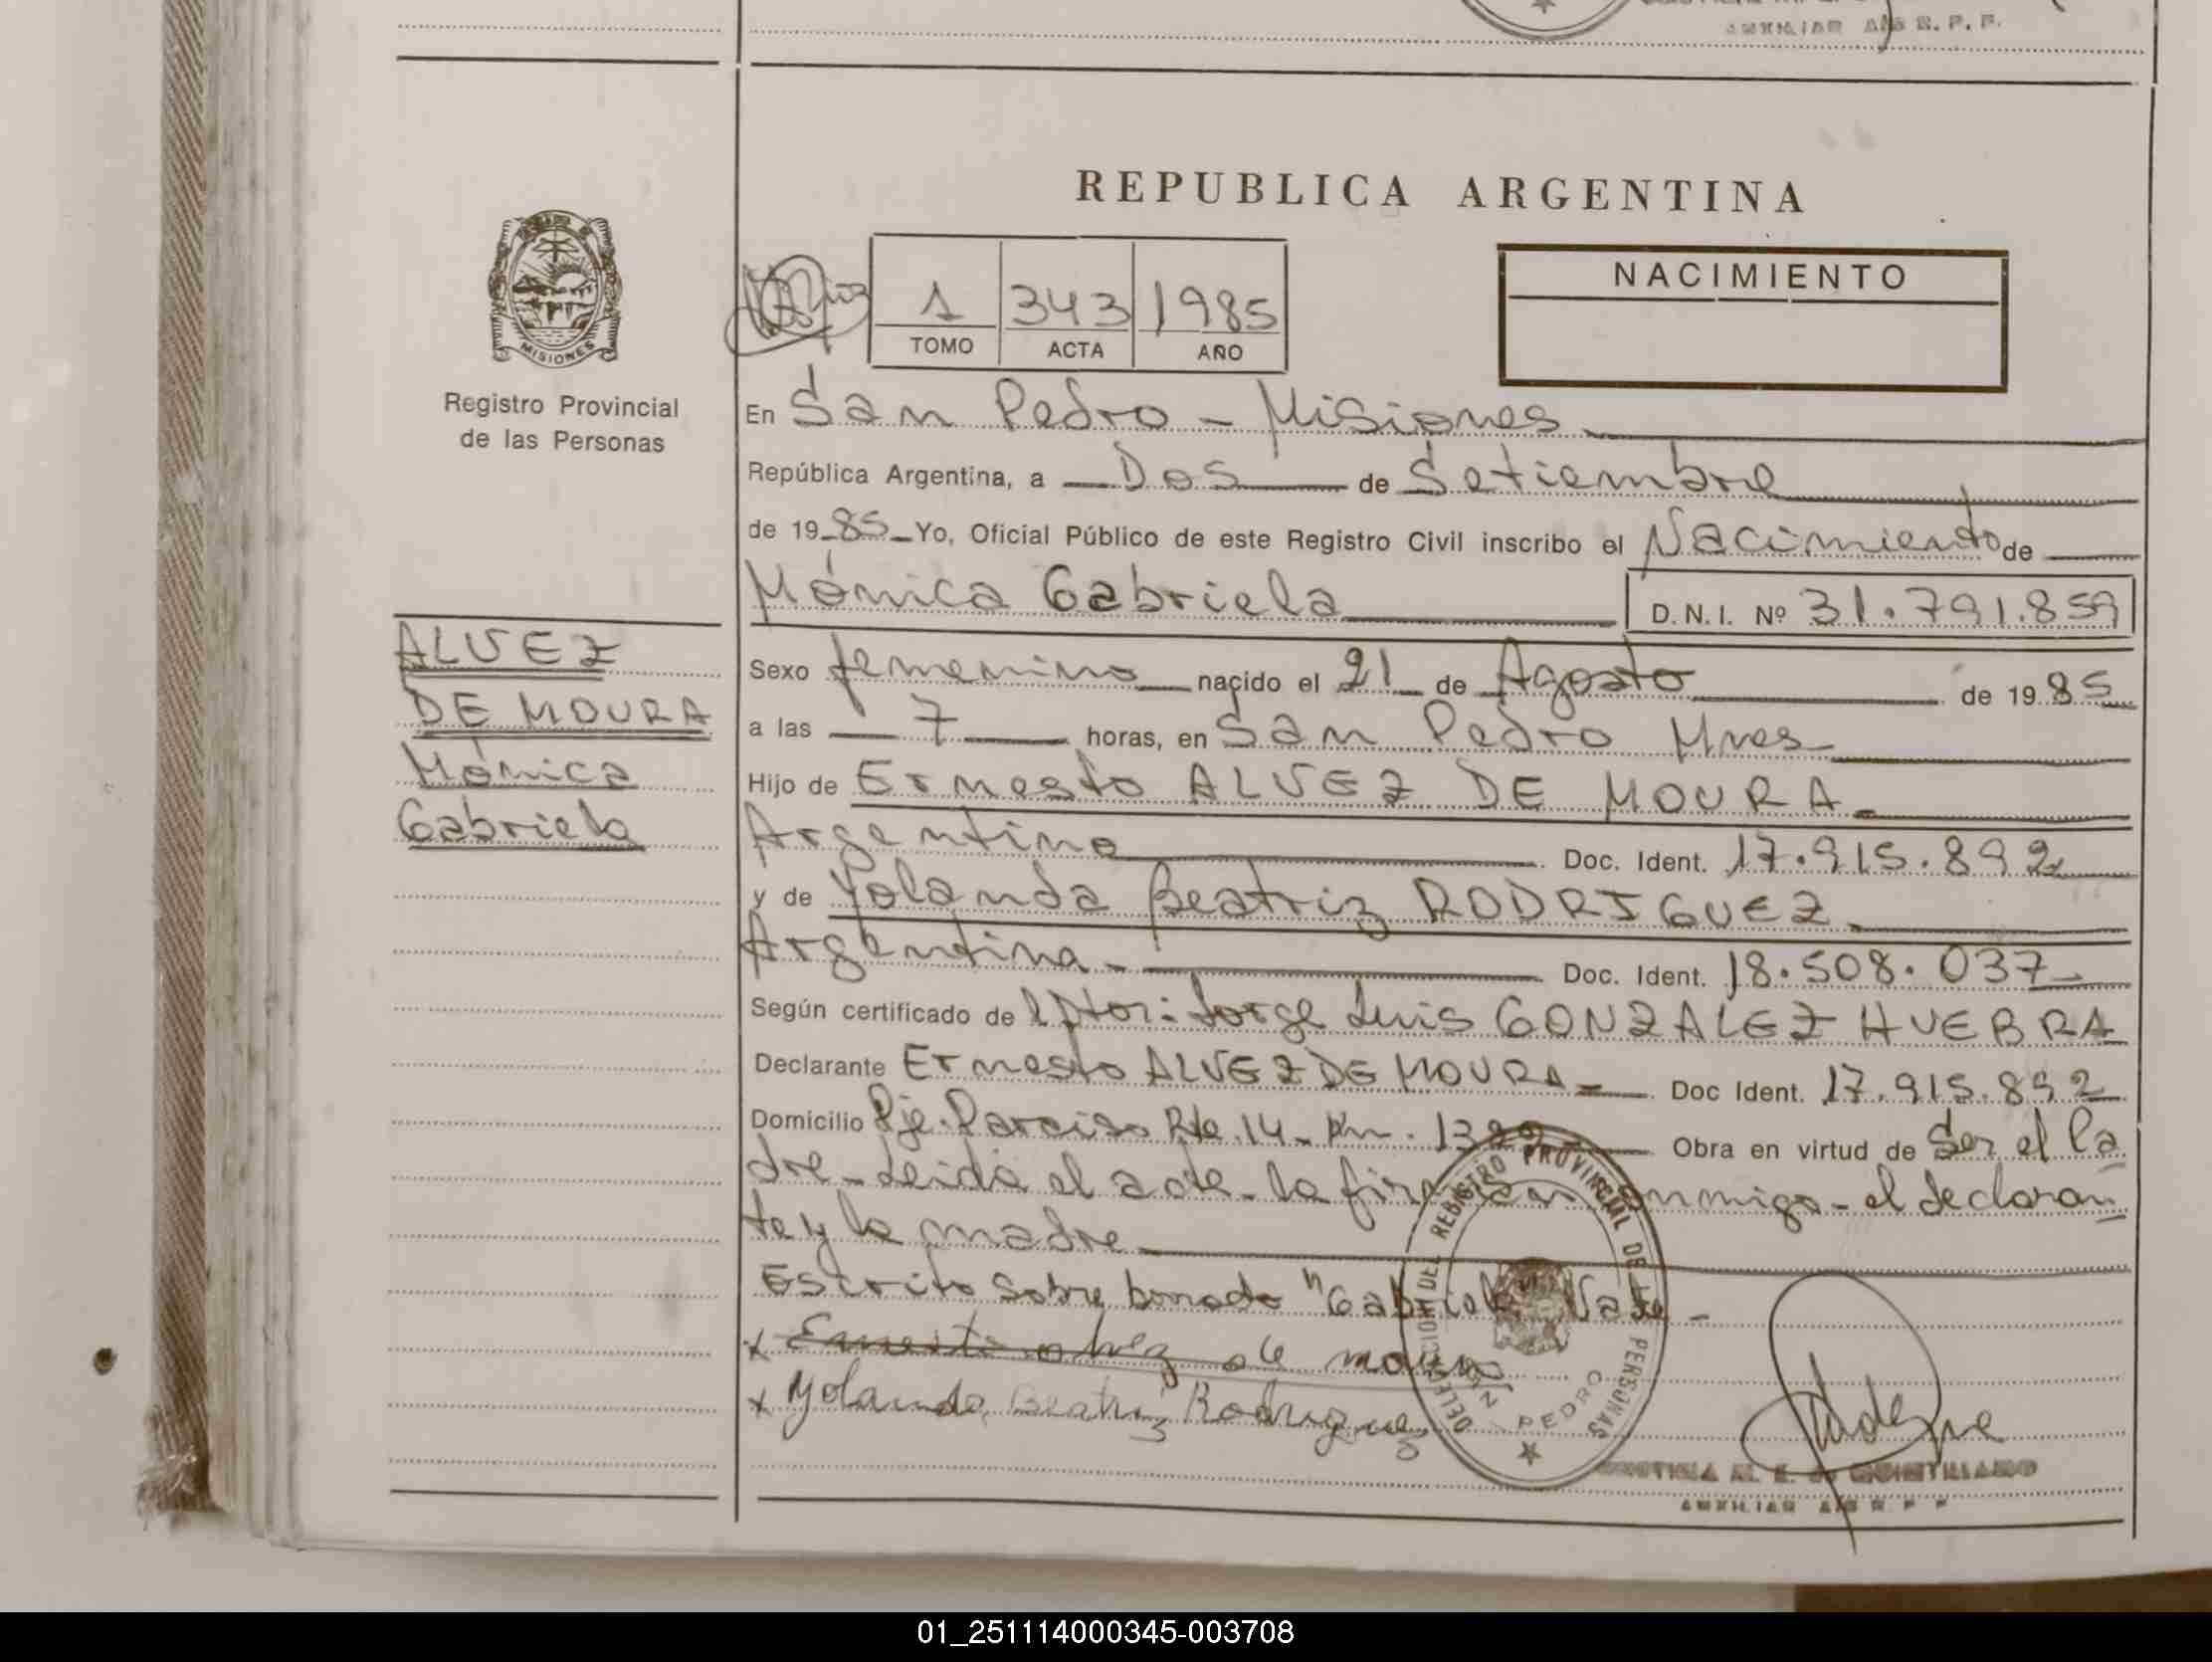 AUXILIAR A/S R.P.P.
REPUBLICA ARGENTINA
NACIMIENTO
1 343 1985
TOMO ACTA AÑO
MISIONES
Registro Provincial
de las Personas
En San Pedro - Misiones
República Argentina, a Dos de Setiembre
de 1985 Yo, Oficial Público de este Registro Civil inscribo el Nacimiento de
Mónica Gabriela D.N.I. Nº 31.791.859
ALVEZ
DE MOURA
Mónica
Gabriela
Sexo femenino nacido el 21 de Agosto de 1985
a las 7 horas, en San Pedro Mnes
Hijo de Ernesto ALVEZ DE MOURA
Argentino Doc. Ident. 17.915.892
y de Yolanda Beatriz RODRIGUEZ
Argentina Doc. Ident. 18.508.037
Según certificado de Jorge Luis GONZALEZ HUEBRA
Declarante Ernesto ALVEZ DE MOURA Doc Ident. 17.915.892
Domicilio Pje. Paraiso Rta. 14 - Km. Obra en virtud de Ser el Pa
dre - Leida el acta - la firman conmigo - el declaran
te y la madre
Escrito sobre borrado "Gabriela" Vale -
x Ernesto alvez de moura
x Yolanda Beatriz Rodriguez
DELEGACION DEL REGISTRO PROVINCIAL DE LAS PERSONAS
SAN PEDRO
AUXILIAR A/S R P P
01_251114000345-003708